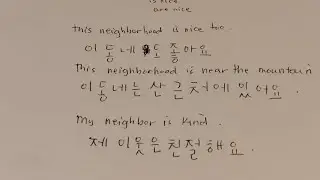 is nice
are nice
this neighborhood is nice too.
이 동네도 좋아요
This neighborhood is near the mountain
이 동네는 산 근처에 있어요
My neighbor is kind.
제 이웃은 친절해요.